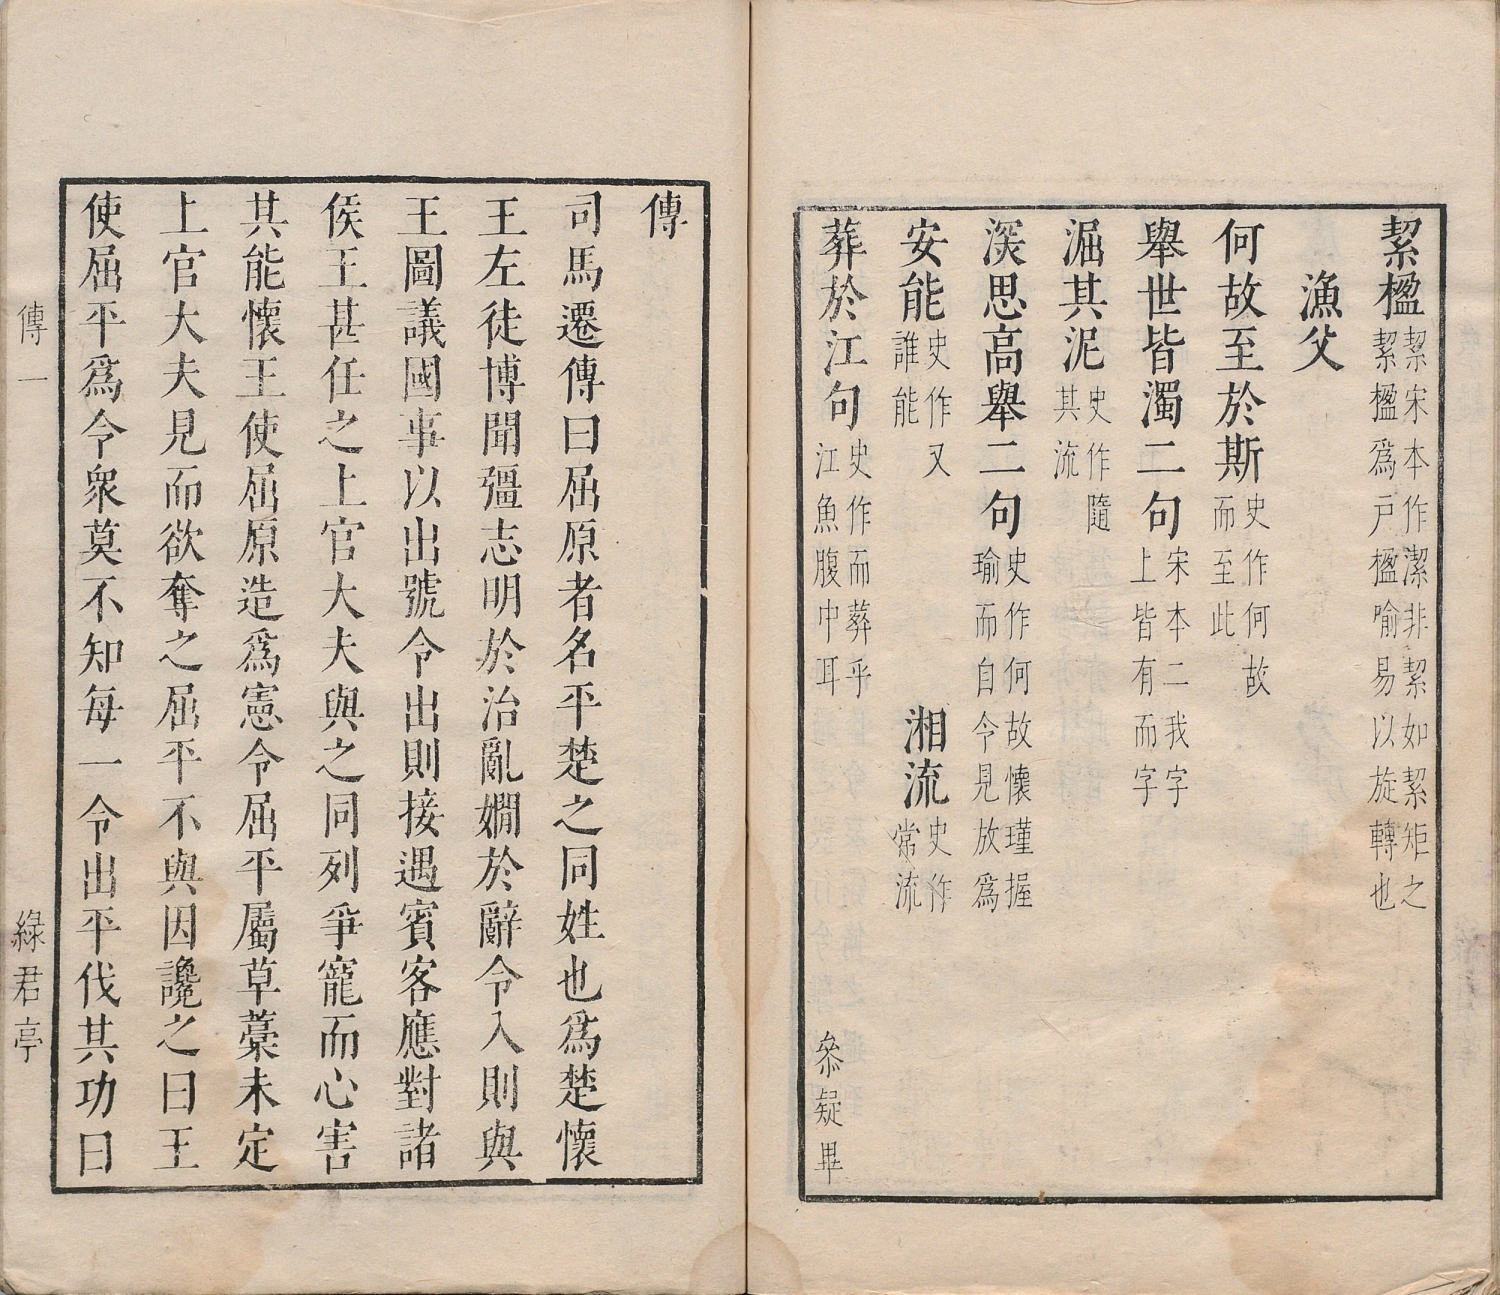 絜楹絜宋本作潔非絜如絜矩之絜楹爲戸楹喻易以旋轉也
漁父
何故至於斯史作何故而至此
舉世皆濁二句宋本二我字上皆有而字
淈其泥史作隨其流
深思高舉二句史作何故懷瑾握瑜而自令見放爲
安能史作又誰能　湘流史作常流
葬於江句史作而葬乎江魚腹中耳　叅疑畢
傳
司馬遷傳曰屈原者名平楚之同姓也爲楚懷
王左徒博聞彊志明於治亂嫺於辭令入則與
王圖議國事以出號令出則接遇賓客應對諸
侯王甚任之上官大夫與之同列爭寵而心害
其能懷王使屈原造爲憲令屈平屬草藁未定
上官大夫見而欲奪之屈平不與因讒之曰王
使屈平爲令衆莫不知每一令出平伐其功曰
傳一　綠君亭